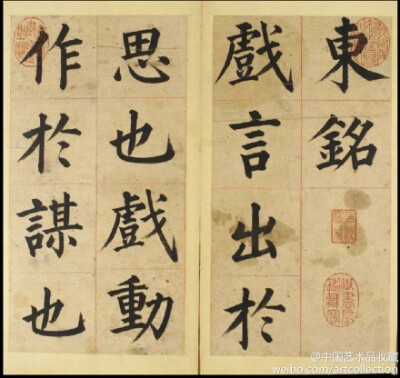 東銘
戲言出於
思也戲動
作於謀也
@中国艺术品收藏
weibo.com/artcollection